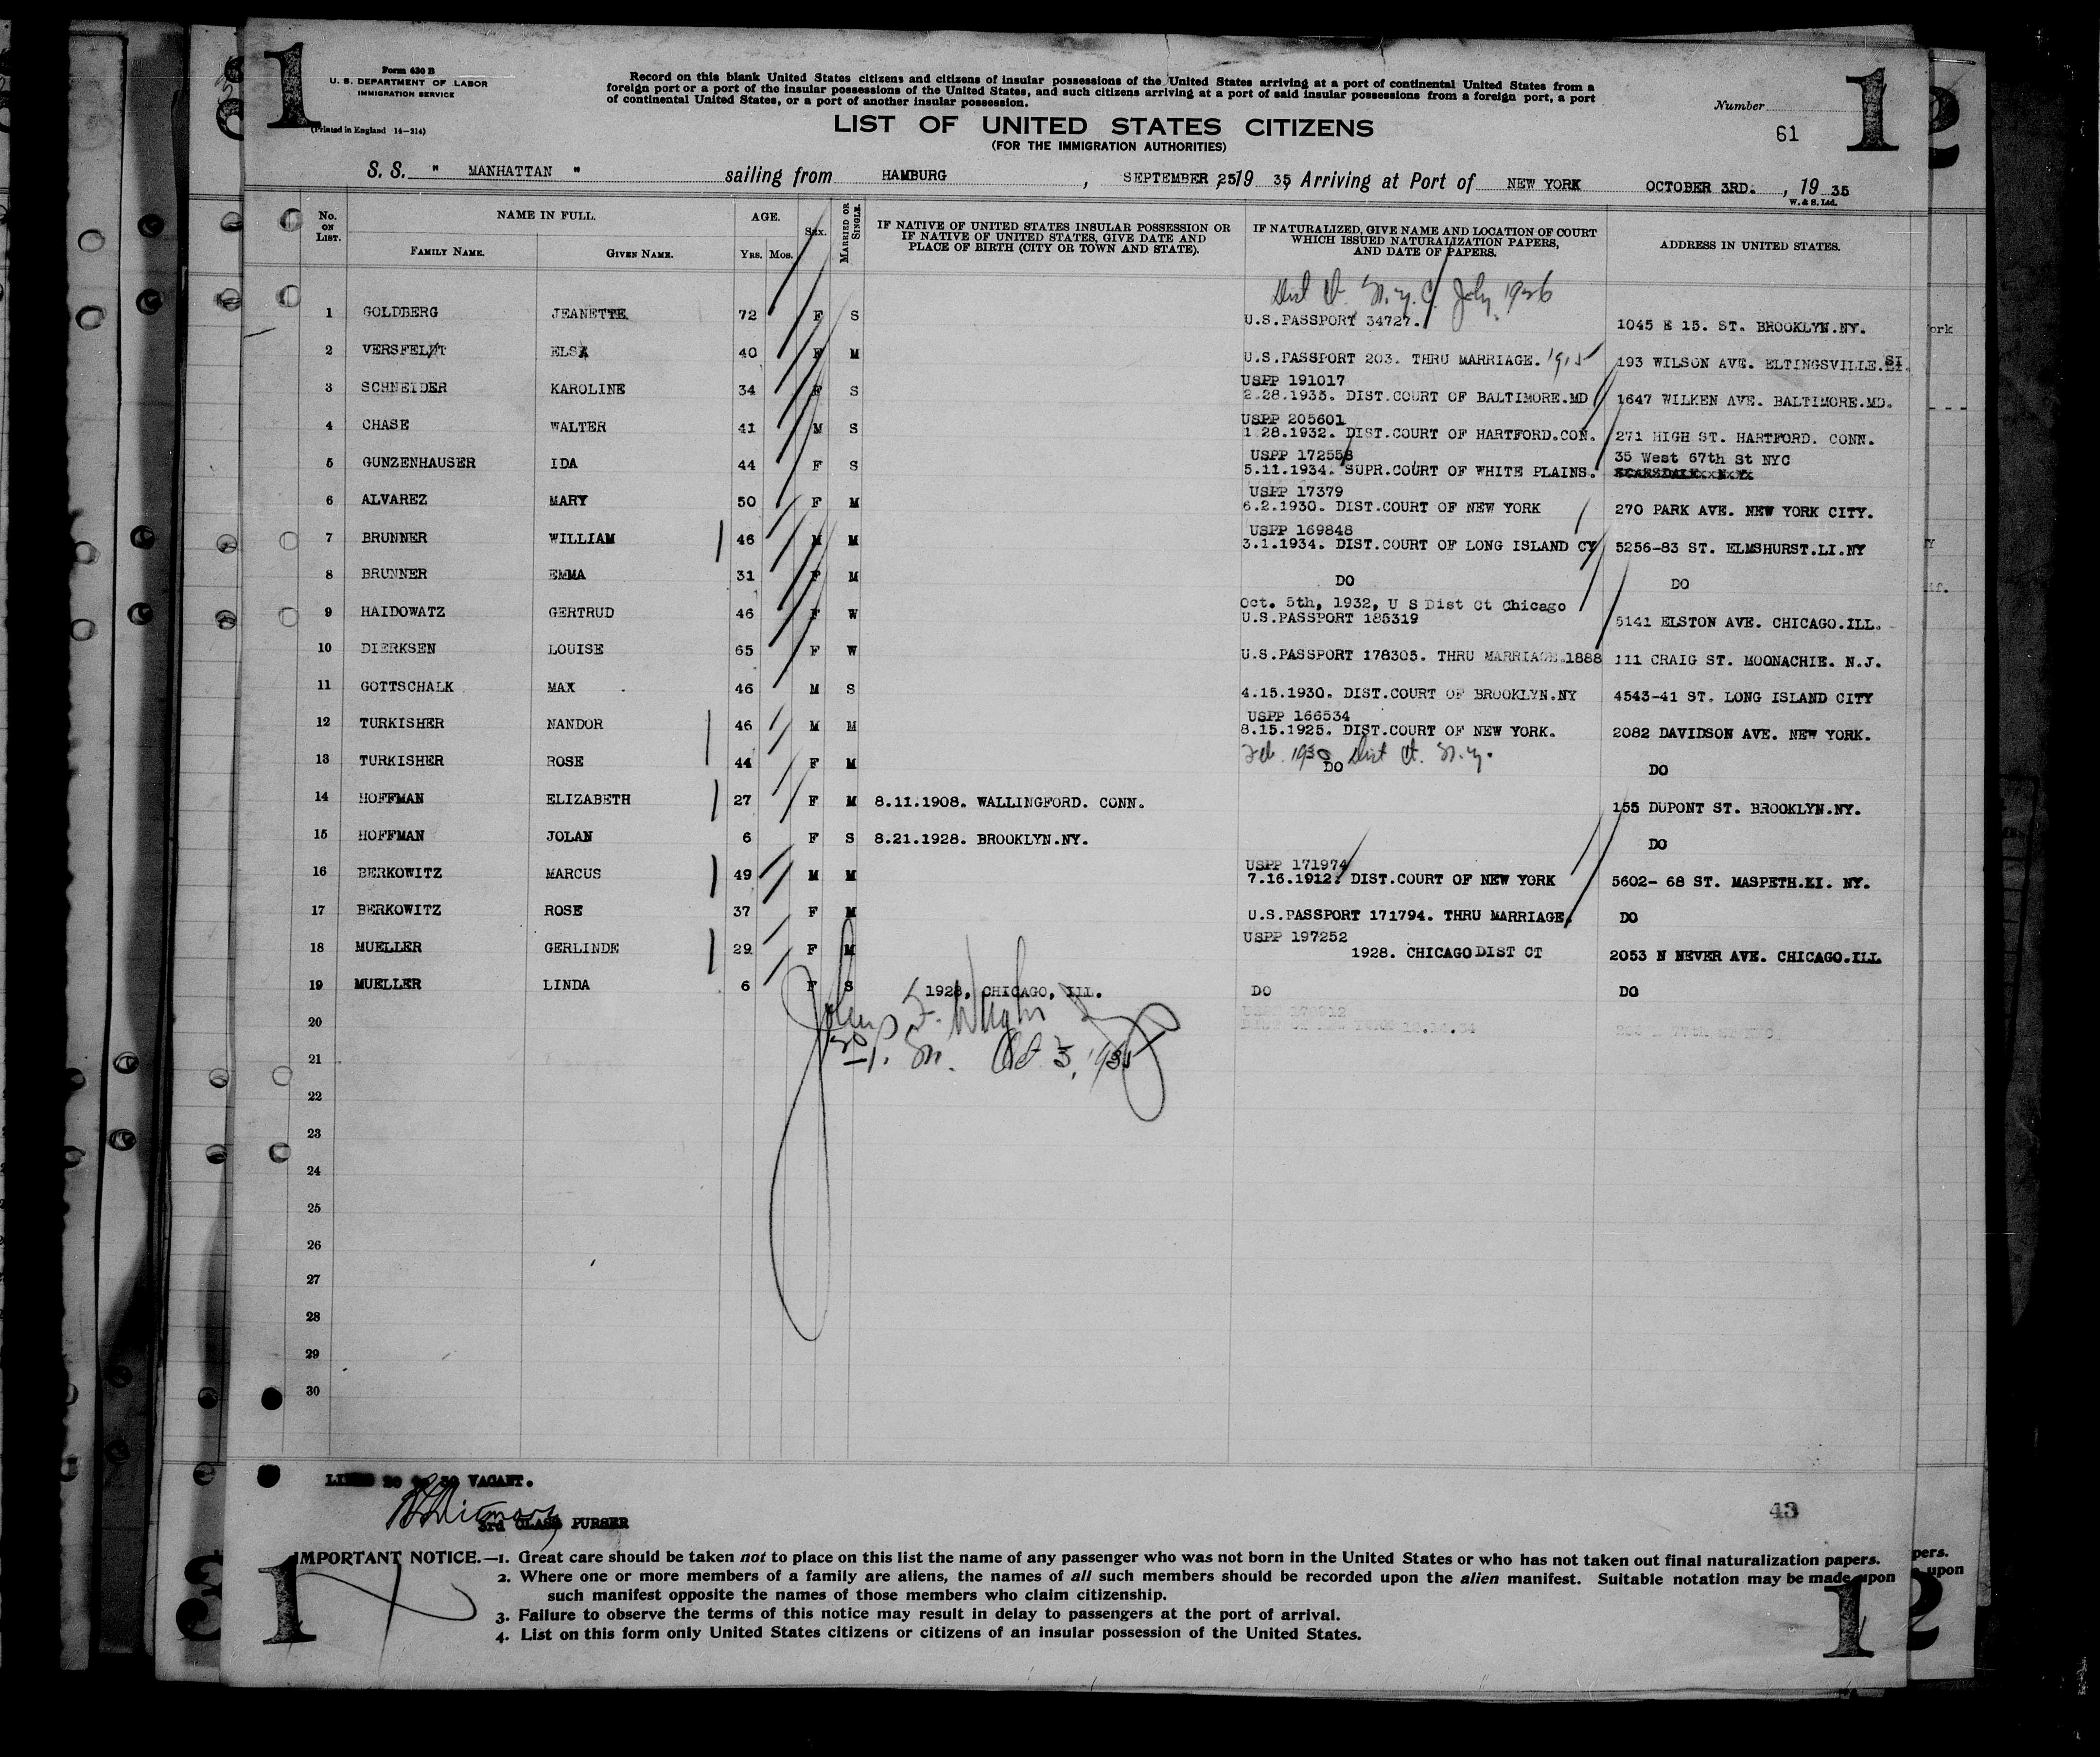 1 1 2
Form 630 B
U. S. DEPARTMENT OF LABOR
IMMIGRATION SERVICE
(Printed in England 14-214)
Record on this blank United States citizens and citizens of insular possessions of the United States arriving at a port of continental United States from a
foreign port or a port of the insular possessions of the United States, and such citizens arriving at a port of said insular possessions from a foreign port, a port
of continental United States, or a port of another insular possession.
Number
61
LIST OF UNITED STATES CITIZENS
(FOR THE IMMIGRATION AUTHORITIES)
S. S. " MANHATTAN " sailing from HAMBURG, SEPTEMBER 25, 19 35, Arriving at Port of NEW YORK OCTOBER 3RD., 19 35
W. & S. Ltd.
No. ON LIST. NAME IN FULL. FAMILY NAME. GIVEN NAME. AGE. YRS. MOS. SEX. MARRIED OR SINGLE. IF NATIVE OF UNITED STATES INSULAR POSSESSION OR IF NATIVE OF UNITED STATES, GIVE DATE AND PLACE OF BIRTH (CITY OR TOWN AND STATE). IF NATURALIZED, GIVE NAME AND LOCATION OF COURT WHICH ISSUED NATURALIZATION PAPERS, AND DATE OF PAPERS. ADDRESS IN UNITED STATES.
Dist Ct. N.Y.C. July, 1926
1 GOLDBERG JEANETTE 72 F S U.S.PASSPORT 34727. 1045 E 15. ST. BROOKLYN.NY.
2 VERSFELT ELSA 40 F M U.S.PASSPORT 203. THRU MARRIAGE. 1915 193 WILSON AVE. ELTINGSVILLE.SI.
USPP 191017
3 SCHNEIDER KAROLINE 34 F S 2.28.1935. DIST.COURT OF BALTIMORE.MD 1647 WILKEN AVE. BALTIMORE.MD.
USPP 205601
4 CHASE WALTER 41 M S 1 28.1932. DIST.COURT OF HARTFORD.CON. 271 HIGH ST. HARTFORD. CONN.
USPP 172558 35 West 67th St NYC
5 GUNZENHAUSER IDA 44 F S 5.11.1934. SUPR.COURT OF WHITE PLAINS. SCARSDALE N.Y.
USPP 17379
6 ALVAREZ MARY 50 F M 6.2.1930. DIST.COURT OF NEW YORK 270 PARK AVE. NEW YORK CITY.
USPP 169848
7 BRUNNER WILLIAM 46 M M 3.1.1934. DIST.COURT OF LONG ISLAND CY 5256-83 ST. ELMSHURST.LI.NY
8 BRUNNER EMMA 31 F M DO DO
Oct. 5th, 1932, U S Dist Ct Chicago
9 HAIDOWATZ GERTRUD 46 F W U.S.PASSPORT 185319 5141 ELSTON AVE. CHICAGO.ILL.
10 DIERKSEN LOUISE 65 F W U.S.PASSPORT 178305. THRU MARRIAGE.1888 111 CRAIG ST. MOONACHIE. N.J.
11 GOTTSCHALK MAX 46 M S 4.15.1930. DIST.COURT OF BROOKLYN.NY 4543-41 ST. LONG ISLAND CITY
USPP 166534
12 TURKISHER NANDOR 46 M M 8.15.1925. DIST.COURT OF NEW YORK. 2082 DAVIDSON AVE. NEW YORK.
Feb. 1930 Dist Ct. N.Y.
13 TURKISHER ROSE 44 F M DO DO
14 HOFFMAN ELIZABETH 27 F M 8.11.1908. WALLINGFORD. CONN. 155 DUPONT ST. BROOKLYN.NY.
15 HOFFMAN JOLAN 6 F S 8.21.1928. BROOKLYN.NY. DO
USPP 171974
16 BERKOWITZ MARCUS 49 M M 7.16.1912. DIST.COURT OF NEW YORK 5602- 68 ST. MASPETH.LI. NY.
17 BERKOWITZ ROSE 37 F M U.S.PASSPORT 171794. THRU MARRIAGE. DO
USPP 197252
18 MUELLER GERLINDE 29 F M 1928. CHICAGO DIST CT 2053 N NEVER AVE. CHICAGO.ILL
19 MUELLER LINDA 6 F S 1928, CHICAGO, ILL. DO DO
20
21 Oct 3, 1935
22
23
24
25
26
27
28
29
30
LINES 20 to 30 VACANT.
3rd CLASS PURSER
43
IMPORTANT NOTICE.—1. Great care should be taken not to place on this list the name of any passenger who was not born in the United States or who has not taken out final naturalization papers.
2. Where one or more members of a family are aliens, the names of all such members should be recorded upon the alien manifest. Suitable notation may be made upon
such manifest opposite the names of those members who claim citizenship.
3. Failure to observe the terms of this notice may result in delay to passengers at the port of arrival.
4. List on this form only United States citizens or citizens of an insular possession of the United States.
pers.
upon
3 1 1 2